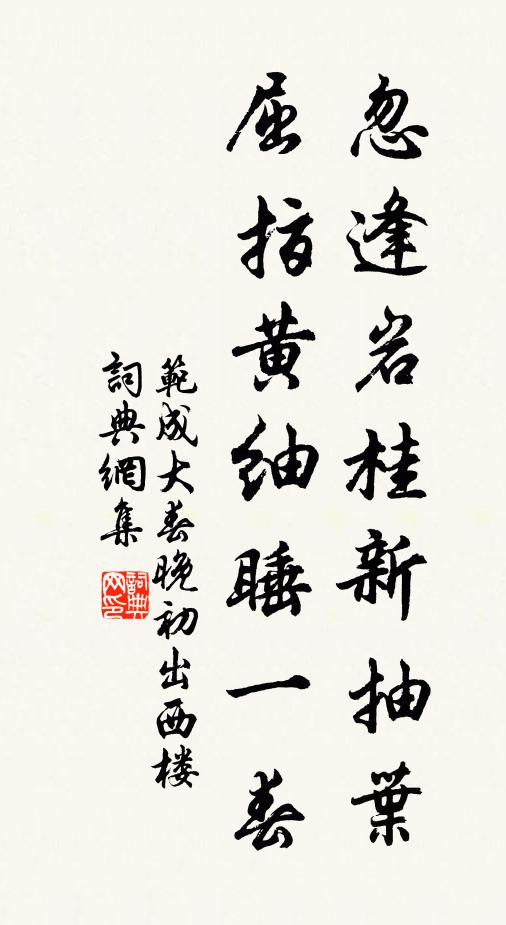 忽逢岩桂新抽葉
屈指黃紬睡一春
範成大春晚初出西楼
詞典網集
詞典
网印